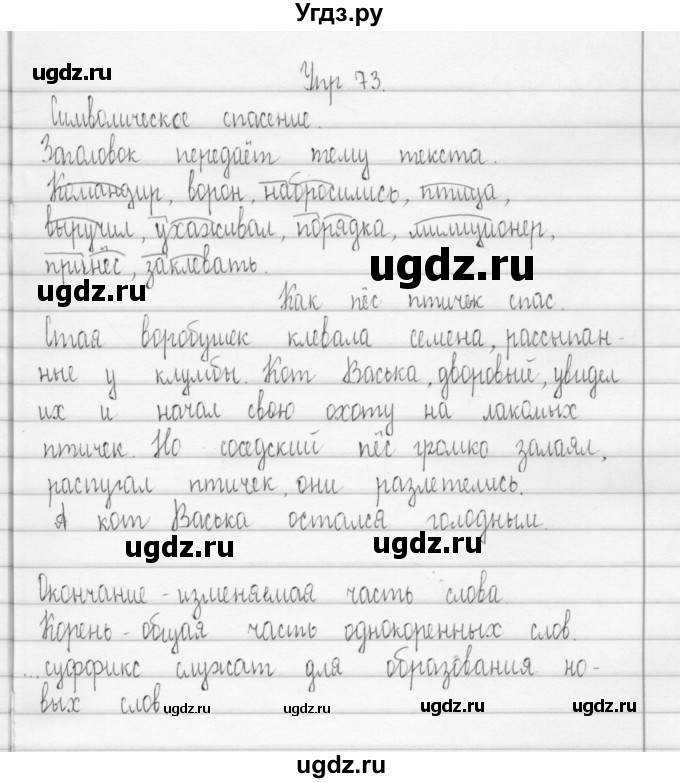 Угдз.ру
ugdz.ru
Упр 73.
Символическое спасение.
Заголовок передаёт тему текста.
Командир, ворон, набросились, птица,
выручил, ухаживал, порядка, милиционер,
принёс, заклевать.
ugdz.ru
ugdz.ru
Как пёс птичек спас.
Стая воробушек клевала семена, рассыпан-
ные у клумбы. Кот Васька, дворовый, увидел
их и начал свою охоту на лакомых
птичек. Но соседский пёс громко залаял,
распугал птичек, они разлетелись.
А кот Васька остался голодным.
ugdz.ru ugdz.ru
Окончание - изменяемая часть слова.
Корень - общая часть однокоренных слов.
...суффикс служат для образования но-
вых слов
ugdz.ru ugdz.ru ugdz.ru ugdz.ru
ugdz.ru